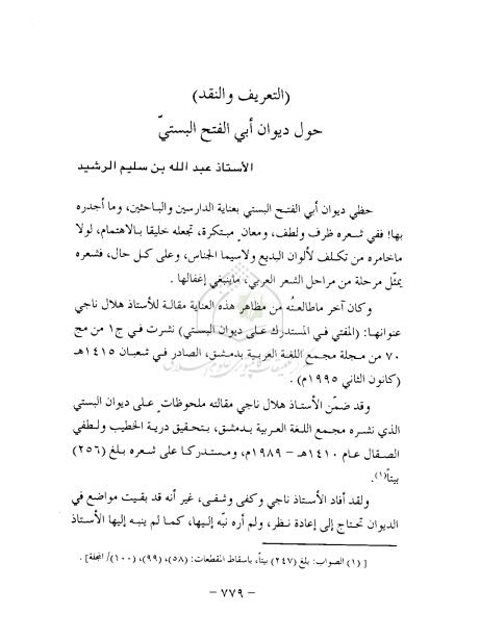 (التعريف والنقد)
حول ديوان أبي الفتح البستيّ
الأستاذ عبد الله بن سليم الرشيد
حظي ديوان أبي الفتح البستي بعناية الدارسين والباحثين، وما أجدره
بها! ففي شعره ظرف ولطف، ومعانٍ مبتكرة، تجعله خليقا بالاهتمام، لولا
ماخامره من تكلف لألوان البديع ولاسيما الجناس، وعلى كل حال، فشعره
يمثّل مرحلة من مراحل الشعر العربي، ماينبغي إغفالها .
وكان آخر ماطالعتُه من مظاهر هذه العناية مقالة للأستاذ هلال ناجي
عنوانها: (المفتي في المستدرك على ديوان البستي) نشرت في ج١ من مج
٧٠ من مجلة مجمع اللغة العربية بدمشق، الصادر في شعبان ١٤١٥هـ
(كانون الثاني ١٩٩٥م) .
وقد ضمّن الأستاذ هلال ناجي مقالته ملحوظاتٍ على ديوان البستي
الذي نشره مجمع اللغة العربية بدمشق، بتحقيق درية الخطيب ولطفي
الصقال عام ١٤١٠هـ – ١٩٨٩م، ومستدركا على شعره بلغ (٢٥٦)
بيتاً(١).
ولقد أفاد الأستاذ ناجي وكفى وشفى، غير أنه قد بقيت مواضع في
الديوان تحتاج إلى إعادة نظر، ولم أره نبّه إليها، كما لم ينبه إليها الأستاذ
[ (١) الصواب: بلغ (٢٤٧) بيتاً، باسقاط المقطعات: (٥٨)، (٩٩)، (١٠٠)/ المجلة] .
– ٧٧٩ –